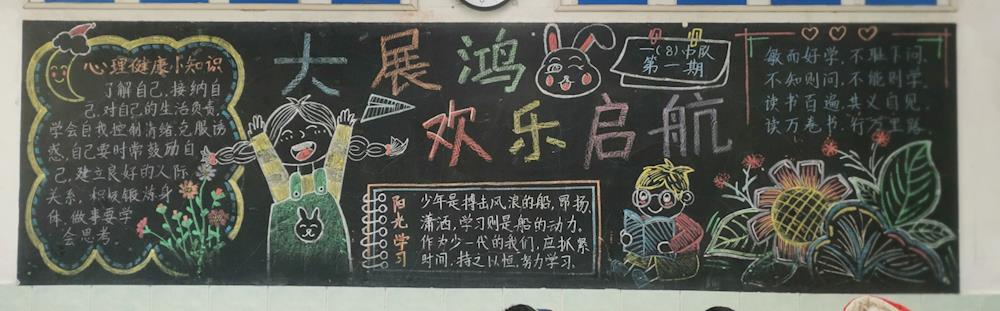 心理健康小知识
了解自己,接纳自
己.对自己的生活负责,
学会自我控制情绪,克服诱
惑,自己要时常鼓励自
己,建立良好的人际
关系,积极锻炼身
体,做事要学
会思考.
大展鸿
欢乐启航
一(8)中队
第一期
阳光学习
少年是搏击风浪的船,昂扬、
潇洒,学习则是船的动力。
作为少一代的我们,应抓紧
时间,持之以恒,努力学习。
敏而好学,不耻下问.
不知则问,不能则学.
读书百遍,其义自见.
读万卷书,行万里路.